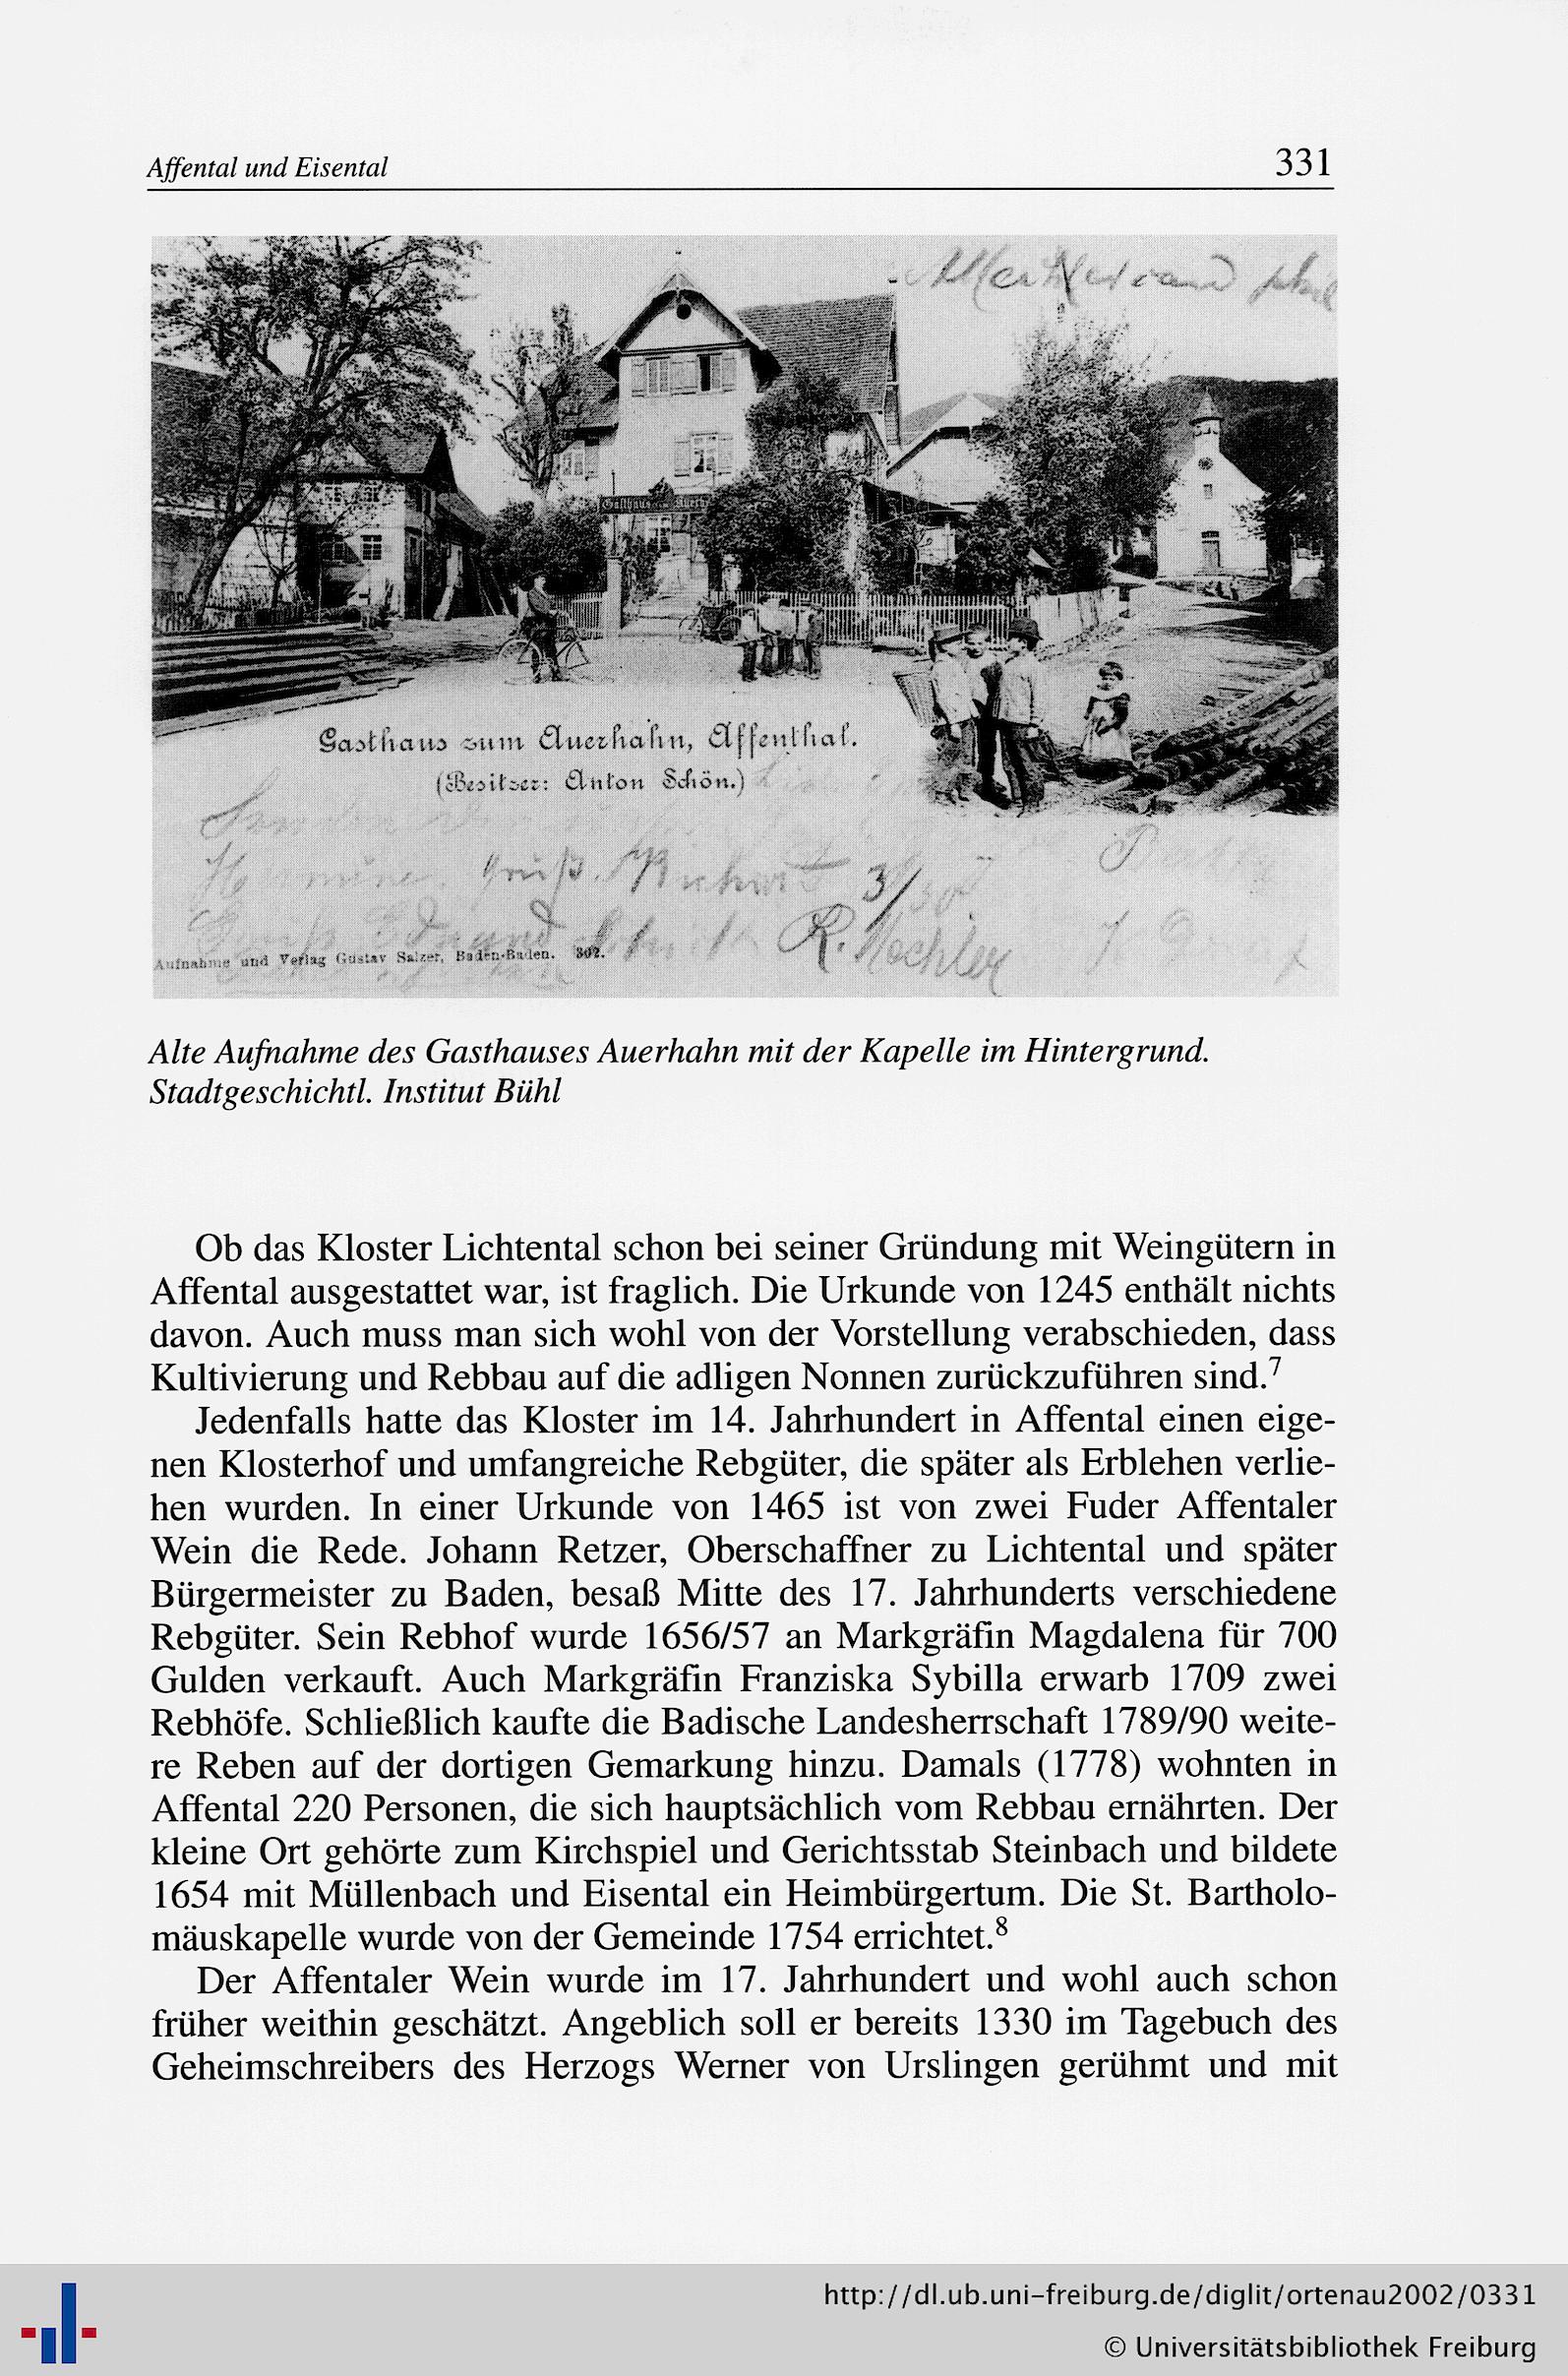 Affental und Eisental
331
Gasthaus zum Auerhahn, Affenthal.
(Besitzer: Anton Schön.)
Hermine. Gruß.
3/
R.
Aufnahme und Verlag Gustav Salzer, Baden-Baden. 302.
Alte Aufnahme des Gasthauses Auerhahn mit der Kapelle im Hintergrund.
Stadtgeschichtl. Institut Bühl
Ob das Kloster Lichtental schon bei seiner Gründung mit Weingütern in
Affental ausgestattet war, ist fraglich. Die Urkunde von 1245 enthält nichts
davon. Auch muss man sich wohl von der Vorstellung verabschieden, dass
Kultivierung und Rebbau auf die adligen Nonnen zurückzuführen sind.⁷
Jedenfalls hatte das Kloster im 14. Jahrhundert in Affental einen eige-
nen Klosterhof und umfangreiche Rebgüter, die später als Erblehen verlie-
hen wurden. In einer Urkunde von 1465 ist von zwei Fuder Affentaler
Wein die Rede. Johann Retzer, Oberschaffner zu Lichtental und später
Bürgermeister zu Baden, besaß Mitte des 17. Jahrhunderts verschiedene
Rebgüter. Sein Rebhof wurde 1656/57 an Markgräfin Magdalena für 700
Gulden verkauft. Auch Markgräfin Franziska Sybilla erwarb 1709 zwei
Rebhöfe. Schließlich kaufte die Badische Landesherrschaft 1789/90 weite-
re Reben auf der dortigen Gemarkung hinzu. Damals (1778) wohnten in
Affental 220 Personen, die sich hauptsächlich vom Rebbau ernährten. Der
kleine Ort gehörte zum Kirchspiel und Gerichtsstab Steinbach und bildete
1654 mit Müllenbach und Eisental ein Heimbürgertum. Die St. Bartholo-
mäuskapelle wurde von der Gemeinde 1754 errichtet.⁸
Der Affentaler Wein wurde im 17. Jahrhundert und wohl auch schon
früher weithin geschätzt. Angeblich soll er bereits 1330 im Tagebuch des
Geheimschreibers des Herzogs Werner von Urslingen gerühmt und mit
http://dl.ub.uni-freiburg.de/diglit/ortenau2002/0331
© Universitätsbibliothek Freiburg